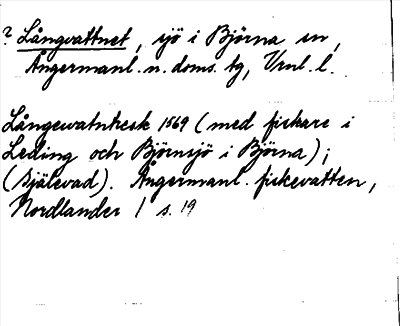 ? Långvattnet, sjö i Björna sn,
Ångermanl. n. doms. tg, Vrnl. l.
Långewatnthesk 1569 (med fiskare i
Leding och Björnsjö i Björna);
(Själevad). Ångermanl. fiskevatten,
Nordlander 1 s. 19